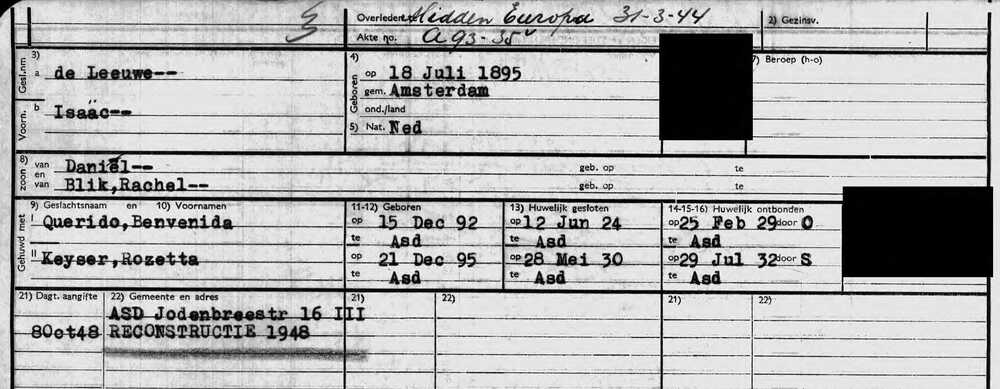 Overleden te Midden Europa 31-3-44
2) Gezinsv.
Akte no. A 93-35
3)
Gesl.nm a de Leeuwe--
Voorn. b Isaäc--
4)
Geboren op 18 Juli 1895
gem. Amsterdam
ond./land
5) Nat. Ned
7) Beroep (h-o)
8) zoon van Daniël-- geb. op te
en
van Blik,Rachel-- geb. op te
9) Geslachtsnaam en 10) Voornamen 11-12) Geboren 13) Huwelijk gesloten 14-15-16) Huwelijk ontbonden
Gehuwd met I Querido,Benvenida op 15 Dec 92 op 12 Jun 24 op 25 Feb 29 door O
te Asd te Asd te Asd
II Keyser,Rozetta op 21 Dec 95 op 28 Mei 30 op 29 Jul 32 door S
te Asd te Asd te Asd
21) Dagt. aangifte 22) Gemeente en adres 21) 22) 21) 22)
ASD Jodenbreestr 16 III
8Oct48 RECONSTRUCTIE 1948